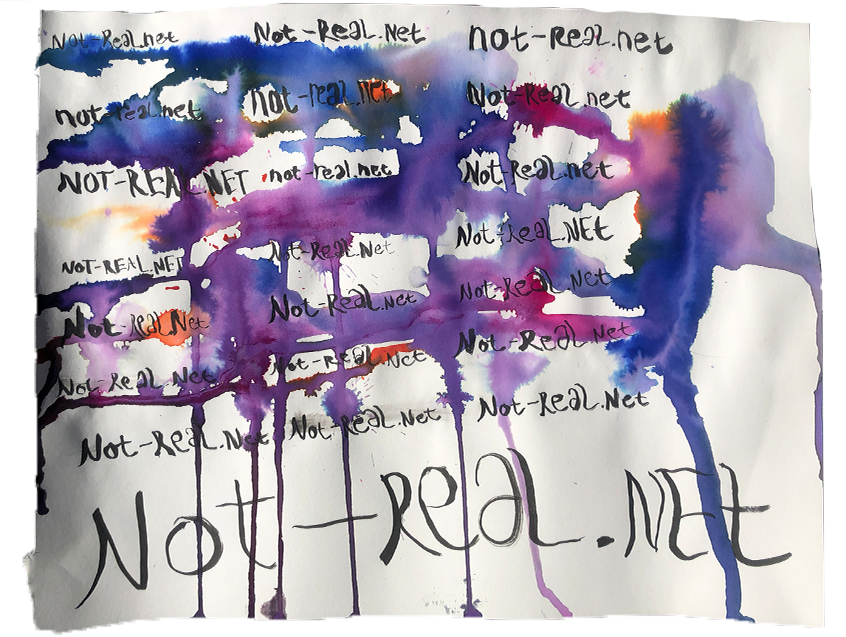 Not-Real.net
Not-Real.Net
not-Real.net
not-real.net
not-real.net
Not-Real.net
NOT-REAL.NET
not-real.net
Not-Real.net
NOT-REAL.NET
Not-Real.Net
Not-Real.NEt
Not-Real.Net
Not-Real.Net
Not-Real.Net
Not-Real.Net
Not-Real.Net
Not-Real.Net
Not-Real.Net
Not-Real.Net
Not-Real.Net
Not-Real.NEt